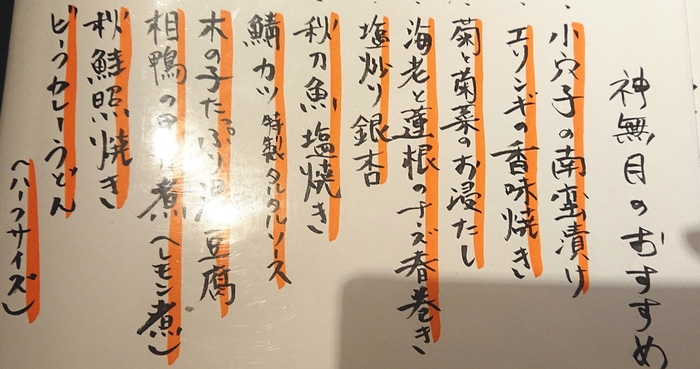 神無月のおすすめ
小穴子の南蛮漬け
エリンギの香味焼き
菊と菊菜のお浸たし
海老と蓮根のチーズ春巻き
塩炒り銀杏
秋刀魚塩焼き
鯖カツ特製タルタルソース
木の子たっぷり 豆腐
相鴨の 煮（レモン煮）
秋鮭照り焼き
ビーフカレーうどん
（ハーフサイズ）